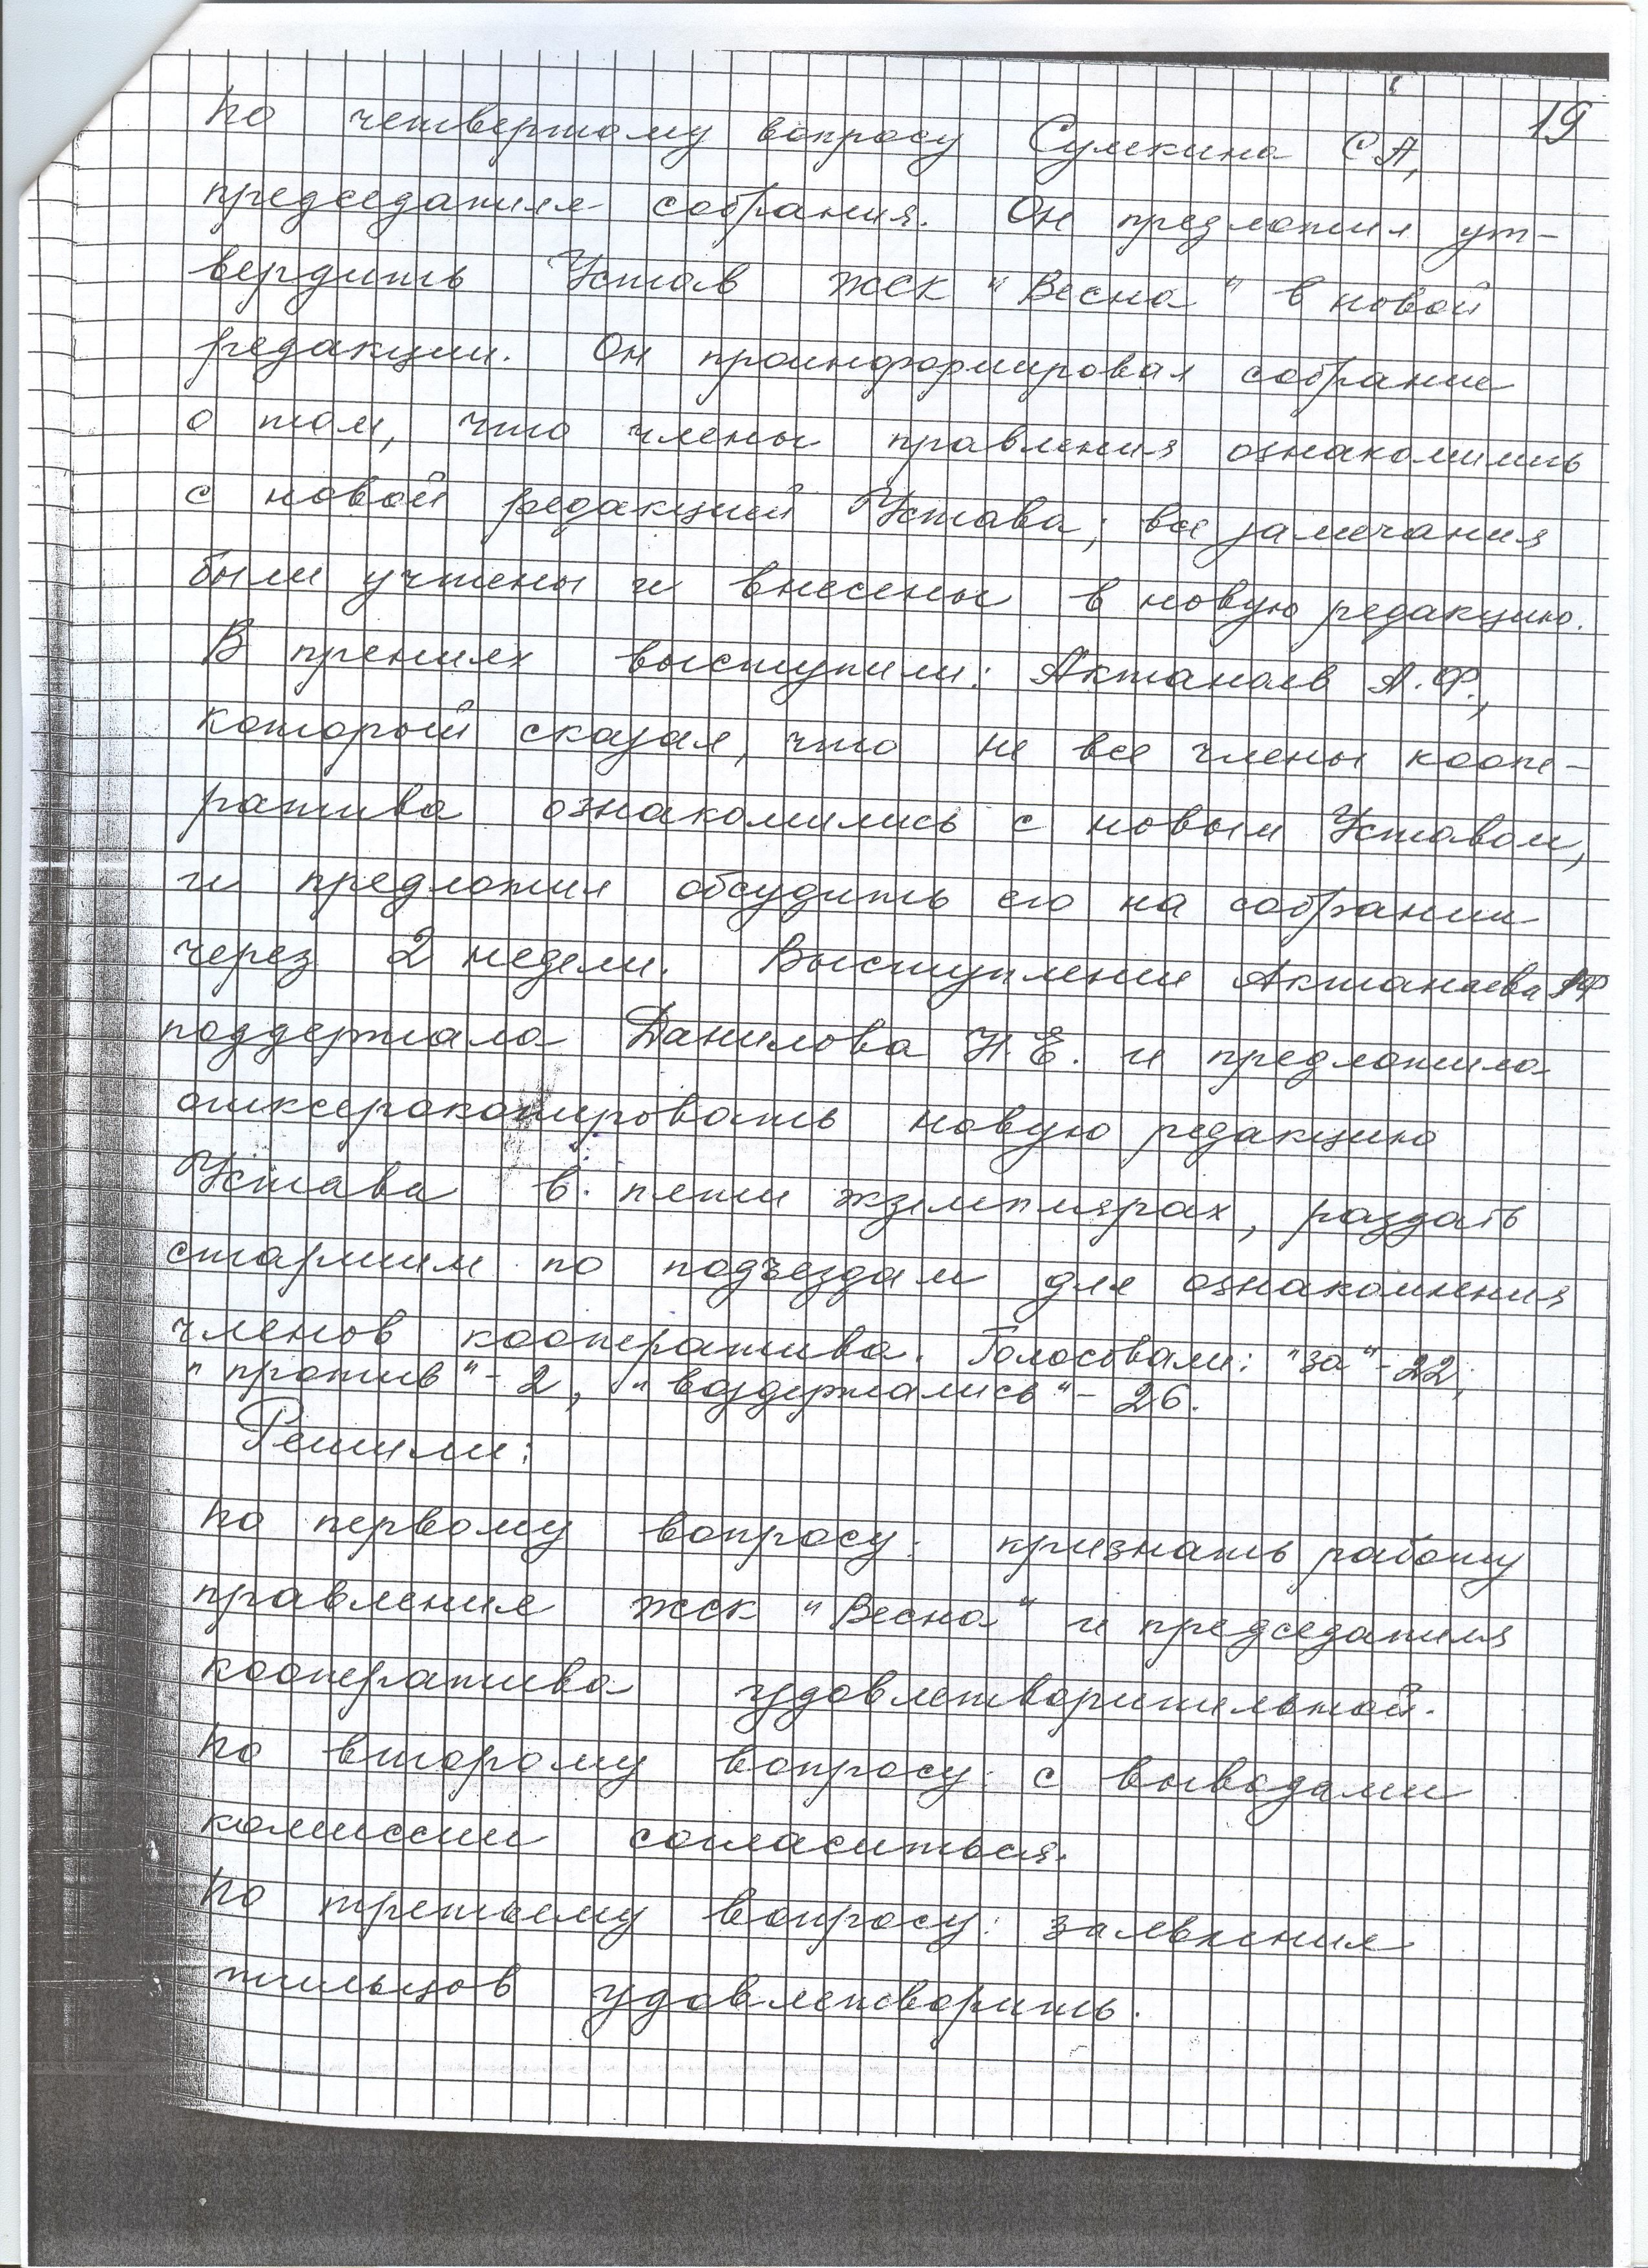 19
По четвертому вопросу Сумкина С.А,
председателя собрания. Он предложил ут-
вердить Устав ЖСК "Весна" в новой
редакции. Он проинформировал собрание
о том, что члены правления ознакомились
с новой редакцией Устава; все замечания
были учтены и внесены в новую редакцию.
В прениях выступили: Актанаев А.Ф.,
который сказал, что не все члены коопе-
ратива ознакомились с новым Уставом,
и предложил обсудить его на собрании
через 2 недели. Выступление Актанаева АФ
поддержала Данилова Н.Е. и предложила
отксерокопировать новую редакцию
Устава в пяти экземплярах, раздать
старшим по подъездам для ознакомления
членов кооператива. Голосовали: "за"-22,
"против"-2, "воздержались"-26.
Решили:
По первому вопросу: признать работу
правления ЖСК "Весна" и председателя
кооператива удовлетворительной.
По второму вопросу: с выводами
комиссии согласиться.
По третьему вопросу: заявления
жильцов удовлетворить.